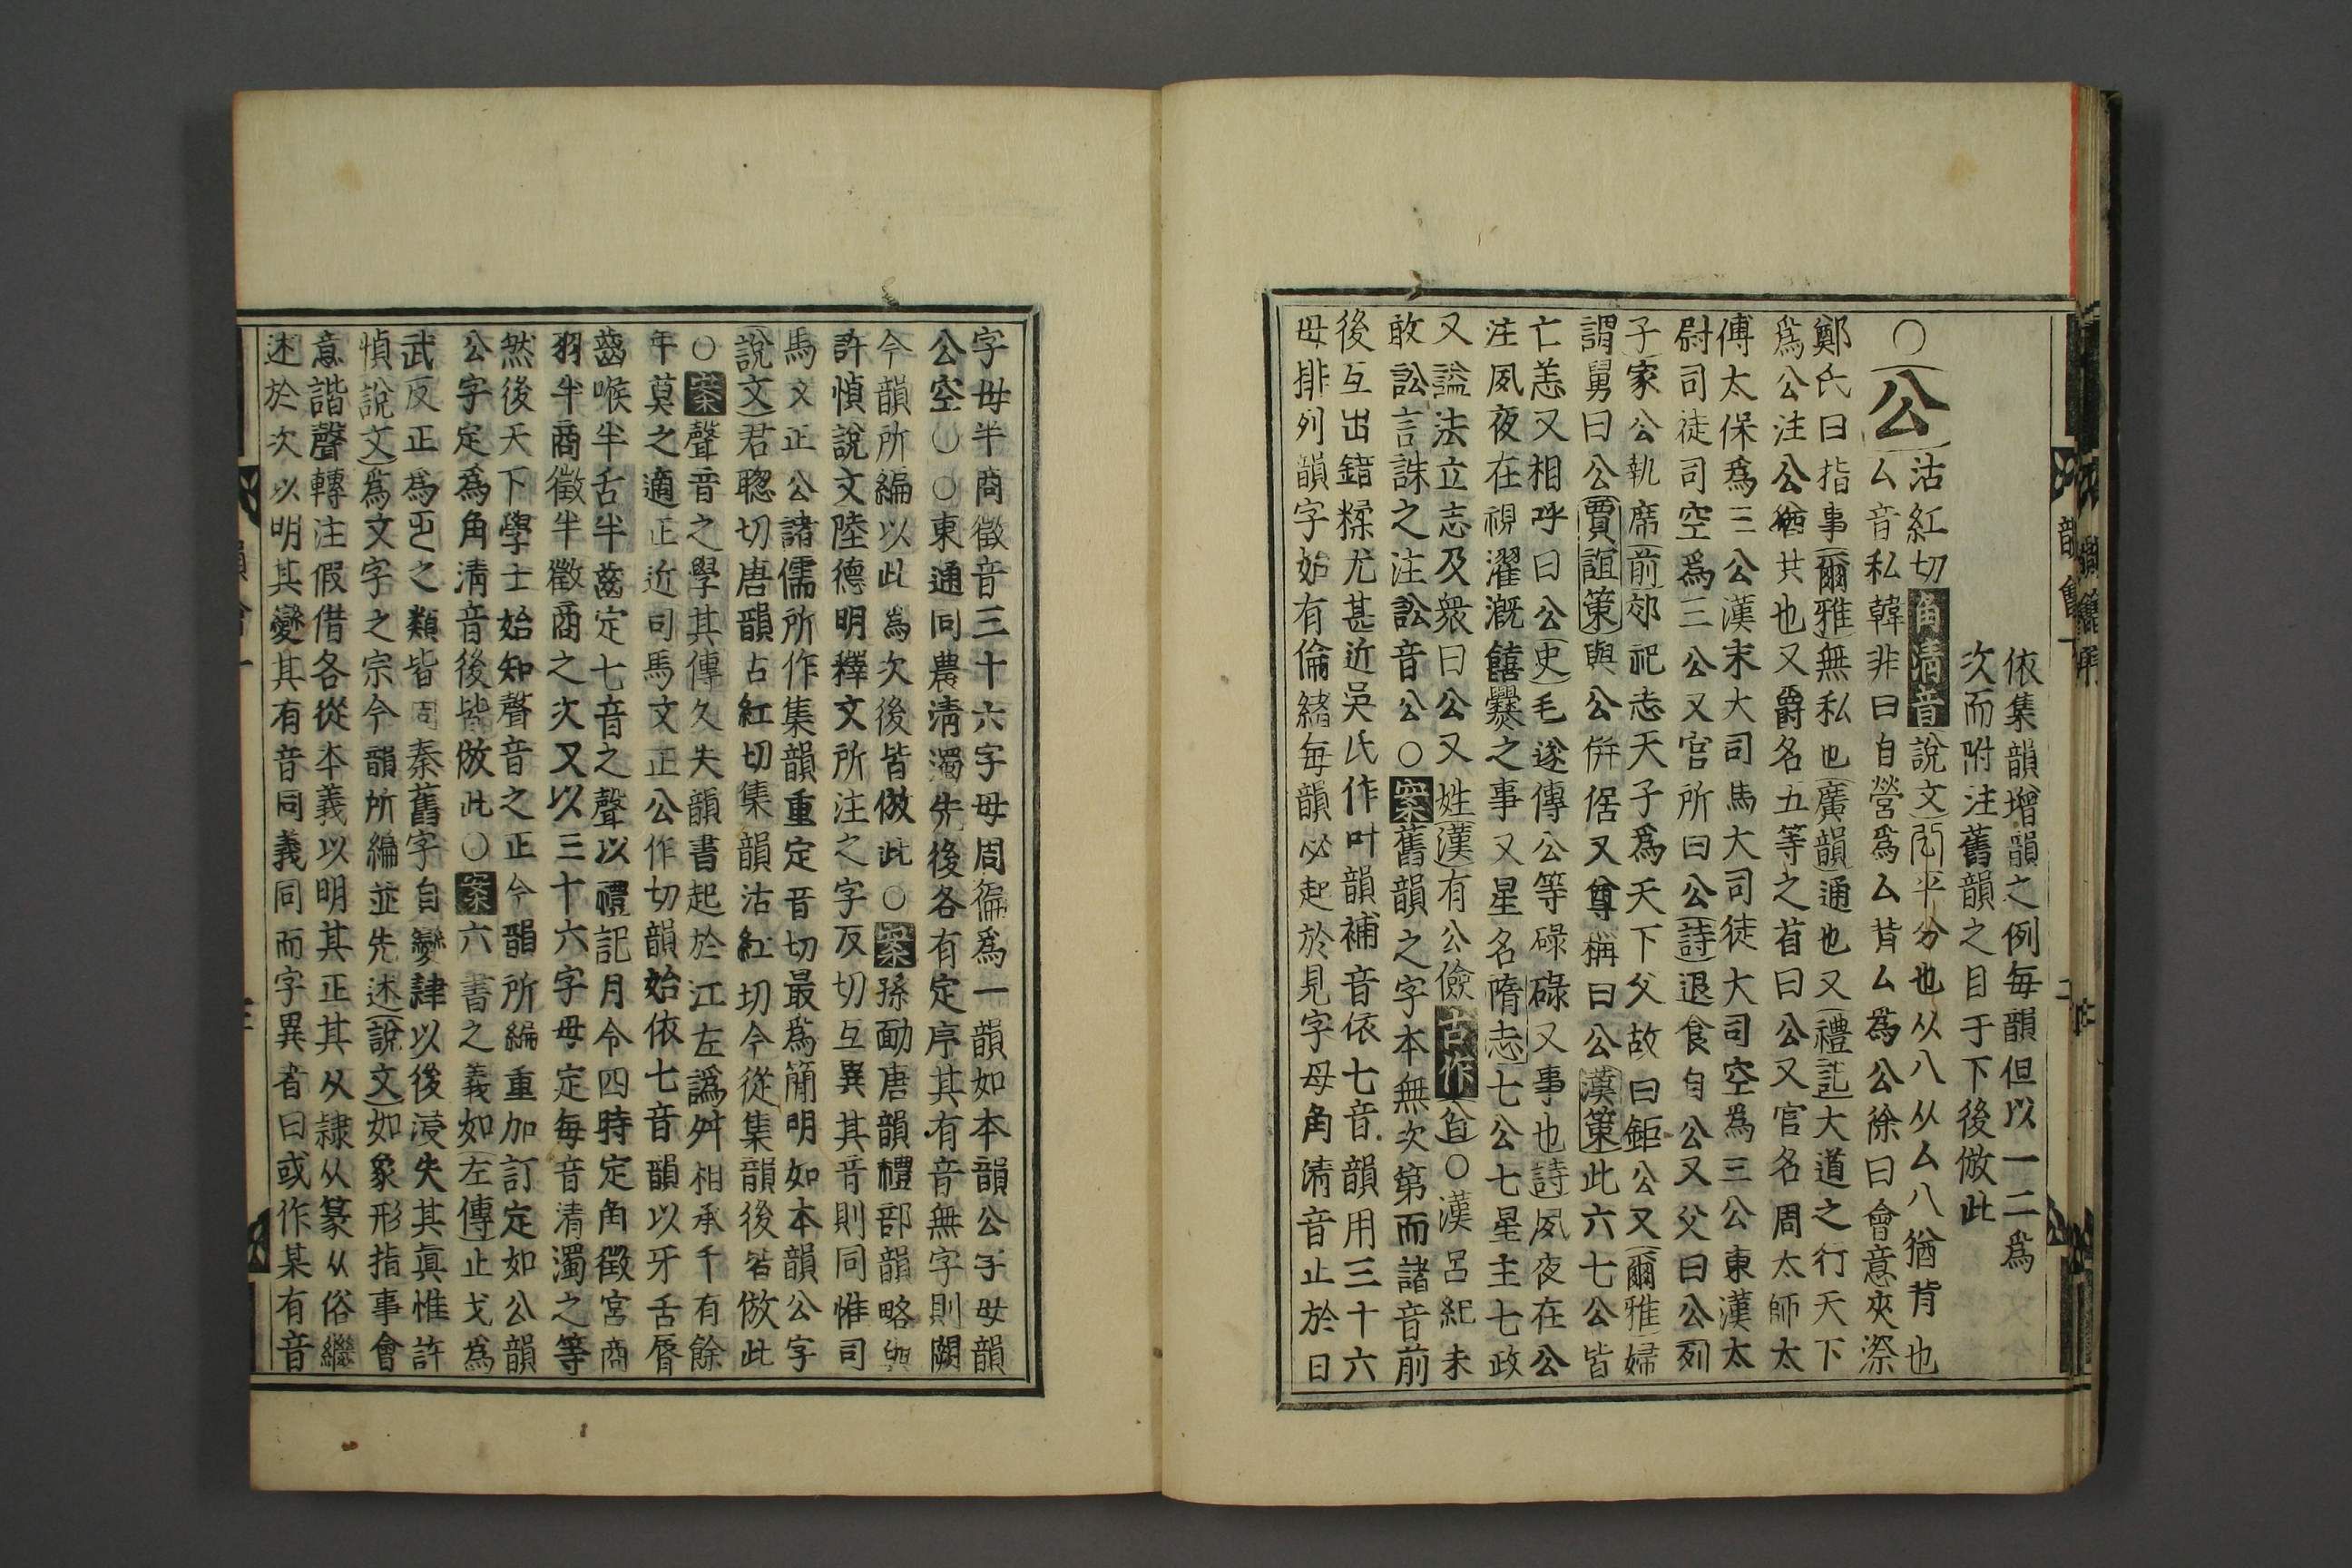 依集韻增韻之例每韻但以一二爲
次而附注舊韻之目于下後倣此
○公沽紅切角清音說文公平分也从八从厶八猶背也
厶音私韓非曰自營爲厶背厶爲公徐曰會意夾漈
鄭氏曰指事爾雅無私也廣韻通也又禮記大道之行天下
爲公注公猶共也又爵名五等之首曰公又官名周太師太
傅太保爲三公漢末大司馬大司徒大司空爲三公東漢太
尉司徒司空爲三公又官所曰公詩退食自公又父曰公列
子家公執席前郊祀志天子爲天下父故曰鉅公又爾雅婦
謂舅曰公賈誼策與公倂倨又尊稱曰公漢策此六七公皆
亡恙又相呼曰公史毛遂傳公等碌碌又事也詩夙夜在公
注夙夜在視濯漑饎爨之事又星名隋志七公七星主七政
又謚法立志及衆曰公又姓漢有公儉古作㒶○漢呂紀未
敢訟言誅之注訟音公○案舊韻之字本無次第而諸音前
後互出錯糅尤甚近吳氏作叶韻補音依七音韻用三十六
母排列韻字始有倫緒每韻必起於見字母角清音止於日
字母半商徵音三十六字母周徧爲一韻如本韻公字母韻
公空○○東通同農清濁先後各有定序其有音無字則闕
今韻所編以此爲次後皆倣此○案孫愐唐韻禮部韻略與
許愼說文陸德明釋文所注之字反切互異其音則同惟司
馬文正公諸儒所作集韻重定音切最爲簡明如本韻公字
說文君聰切唐韻古紅切集韻沽紅切今從集韻後皆倣此
○案聲音之學其傳久失韻書起於江左譌舛相承千有餘
年莫之適正近司馬文正公作切韻始依七音韻以牙舌脣
齒喉半舌半齒定七音之聲以禮記月令四時定角徵宮商
羽半商徵半徵商之次又以三十六字母定每音清濁之等
然後天下學士始知聲音之正今韻所編重加訂定如公韻
公字定爲角清音後皆倣此○案六書之義如左傳止戈爲
武反正爲乏之類皆周秦舊字自變隸以後浸失其眞惟許
愼說文爲文字之宗今韻所編並先述說文如象形指事會
意諧聲轉注假借各從本義以明其正其从隸从篆从俗繼
述於次以明其變其有音同義同而字異者曰或作某有音